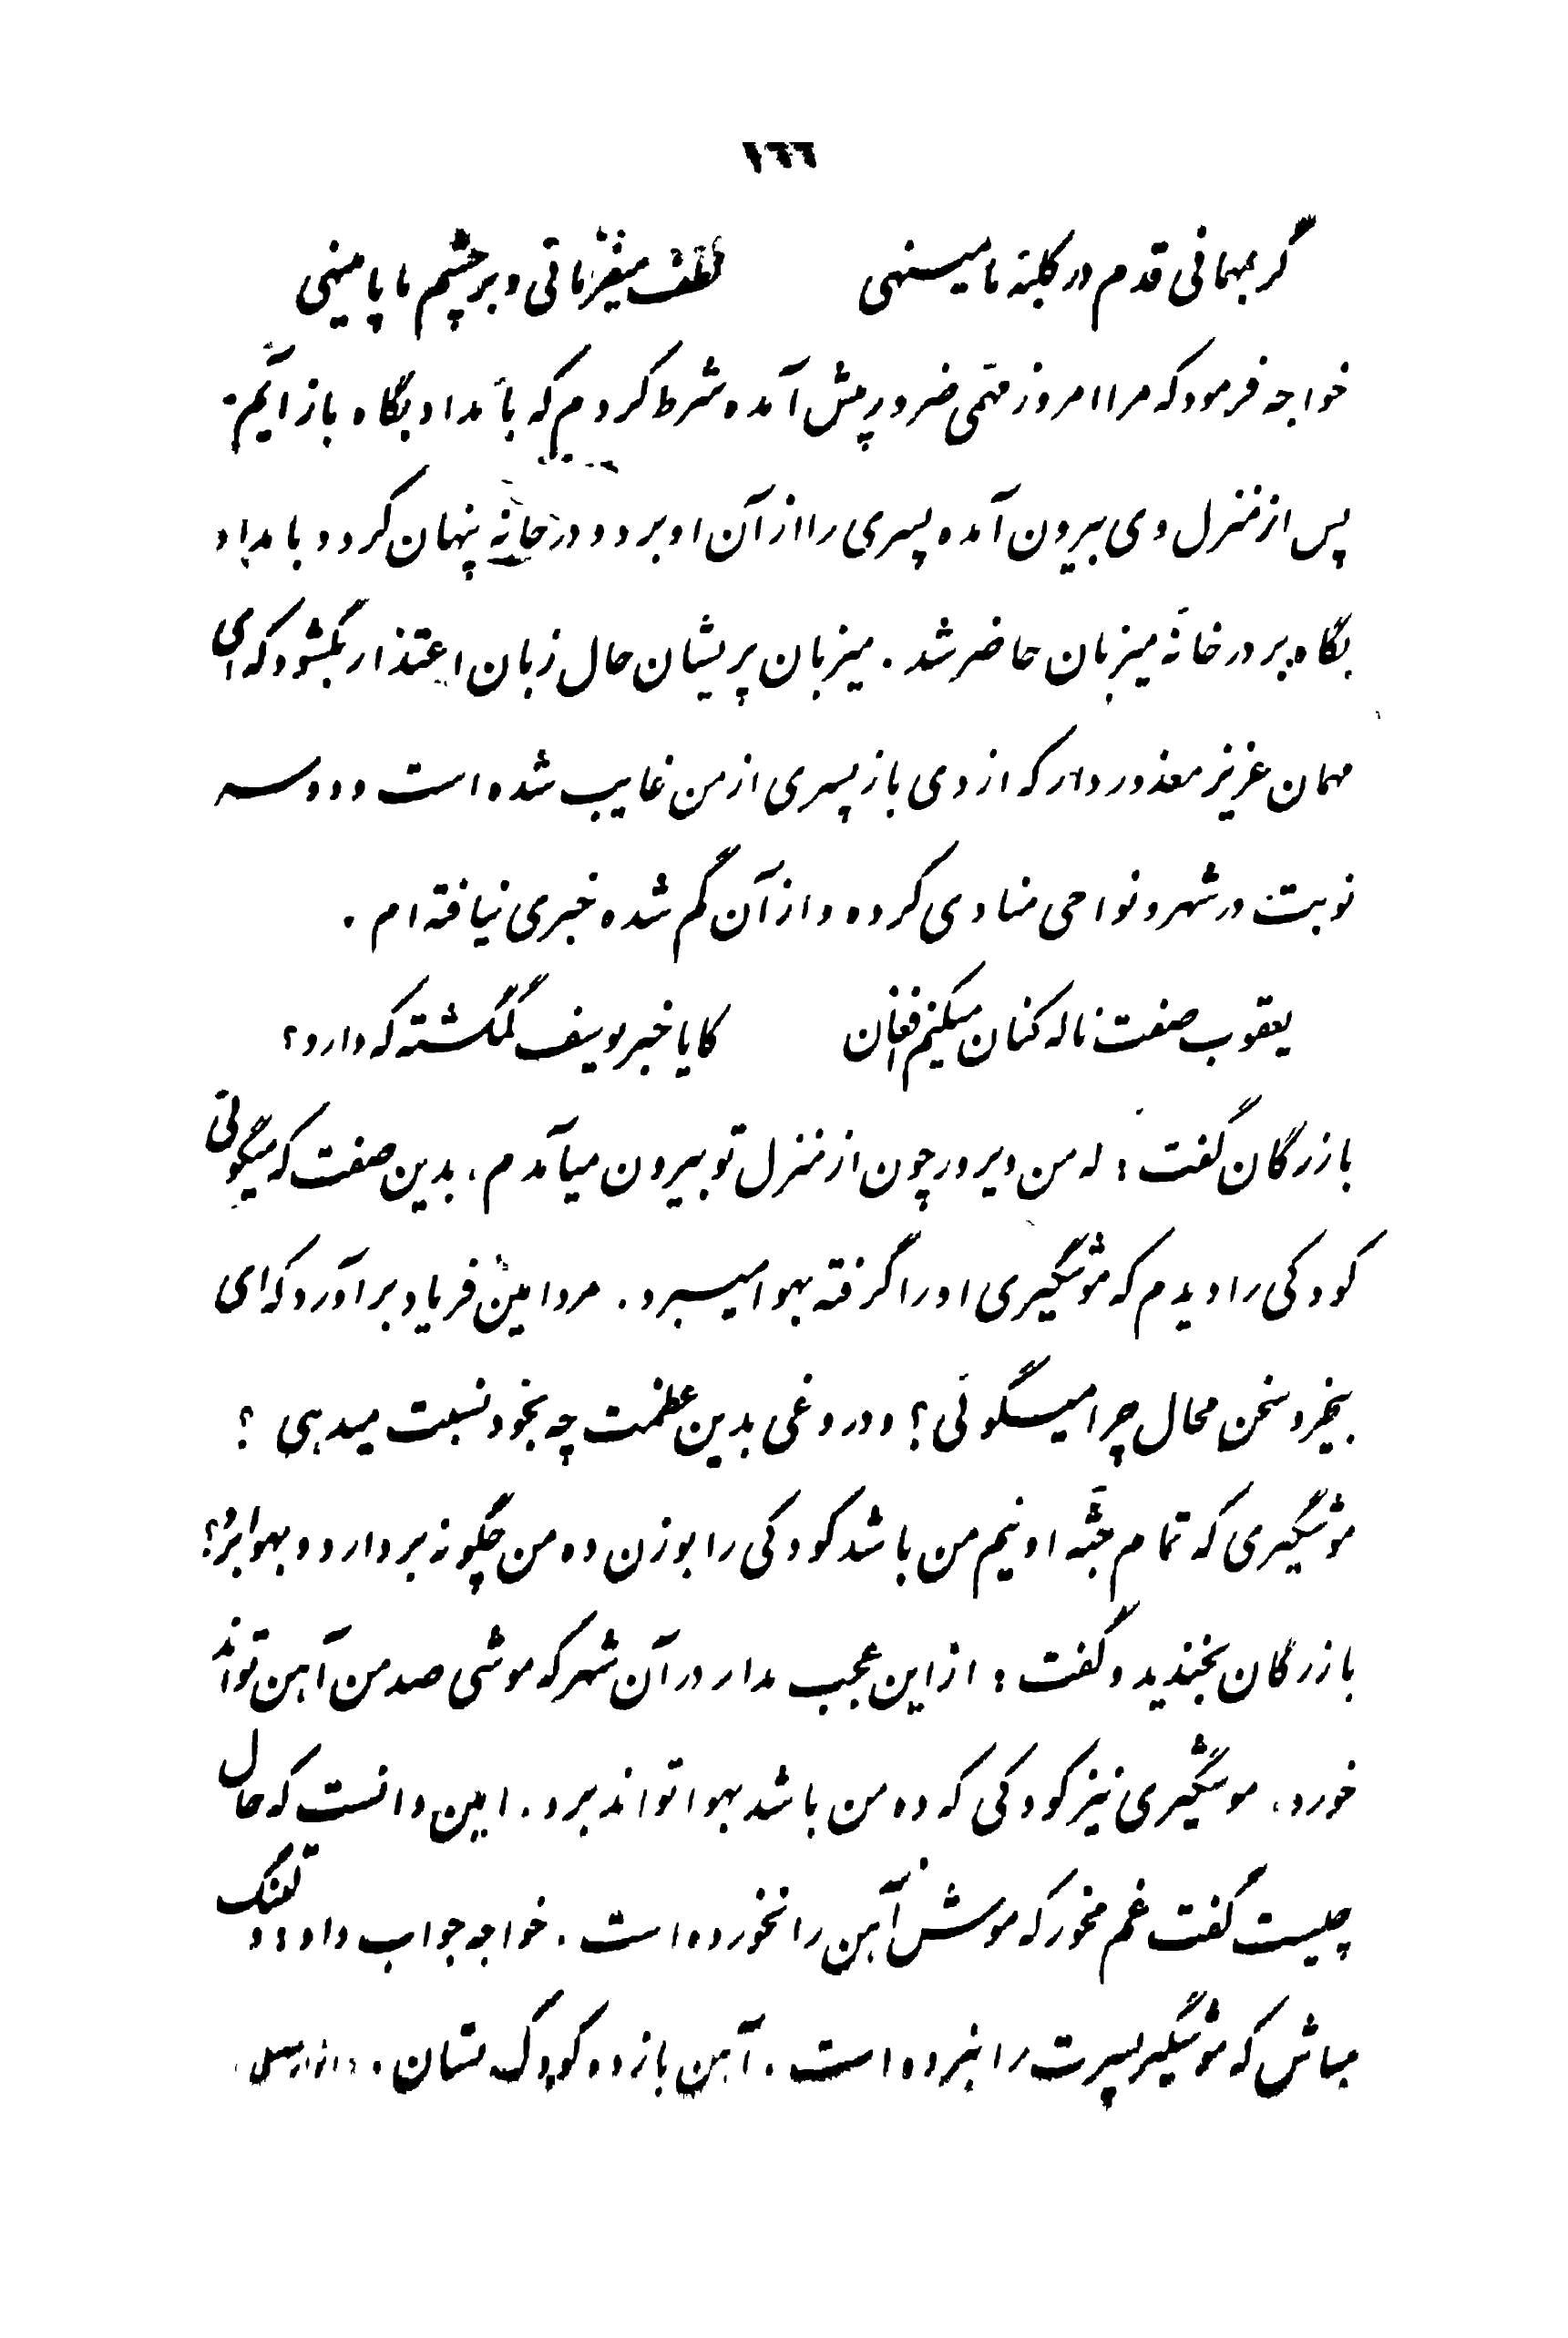 ١٦٦
گر بمهمانی قدم در کلبهٔ ما مینهی لطف میفرمائی و بر چشم ما پا مینهی
خواجه فرمود که مرا امروز مهمّی ضرور پیش آمده شرط کردم که بامداد بگاه باز آیم.
پس از منزل وی بیرون آمده پسری را از آن او برد و در خانه پنهان کرد و بامداد
بگاه بر در خانهٔ میزبان حاضر شد. میزبان پریشان حال زبان اعتذار بگشود که ای
مهمان عزیز معذور دار که از دی باز پسری از من غایب شده است و دو سه
نوبت در شهر و نواحی منادی کرده و از آن گم شده خبری نیافته ام.
یعقوب صفت ناله کنان میکنم افغان کایا خبر یوسف گمگشته که دارد؟
بازرگان گفت: که من دیروز چون از منزل تو بیرون میآمدم، بدین صفت که میگوئی
کودکی را دیدم که موشگیری او را گرفته بهوا میبرد. مرد امین فریاد برآورد که ای
بیخرد سخن محال چرا میگوئی؟ و دروغی بدین عظمت چه بخود نسبت میدهی؟
موشگیری که تمام جثّه او نیم من باشد کودکی را بوزن ده من چگونه بردارد و بهوا برد؟
بازرگان بخندید و گفت: از این عجب مدار در آن شهر که موشی صد من آهن تواند
خورد، موشگیری نیز کودکی که ده من باشد بهوا تواند برد. امین دانست که حال
چیست گفت غم مخور که موش آهن را نخورده است. خواجه جواب داد: دلتنگ
مباش که موشگیر پسرت را نبرده است. آهن باز ده کودک بستان.